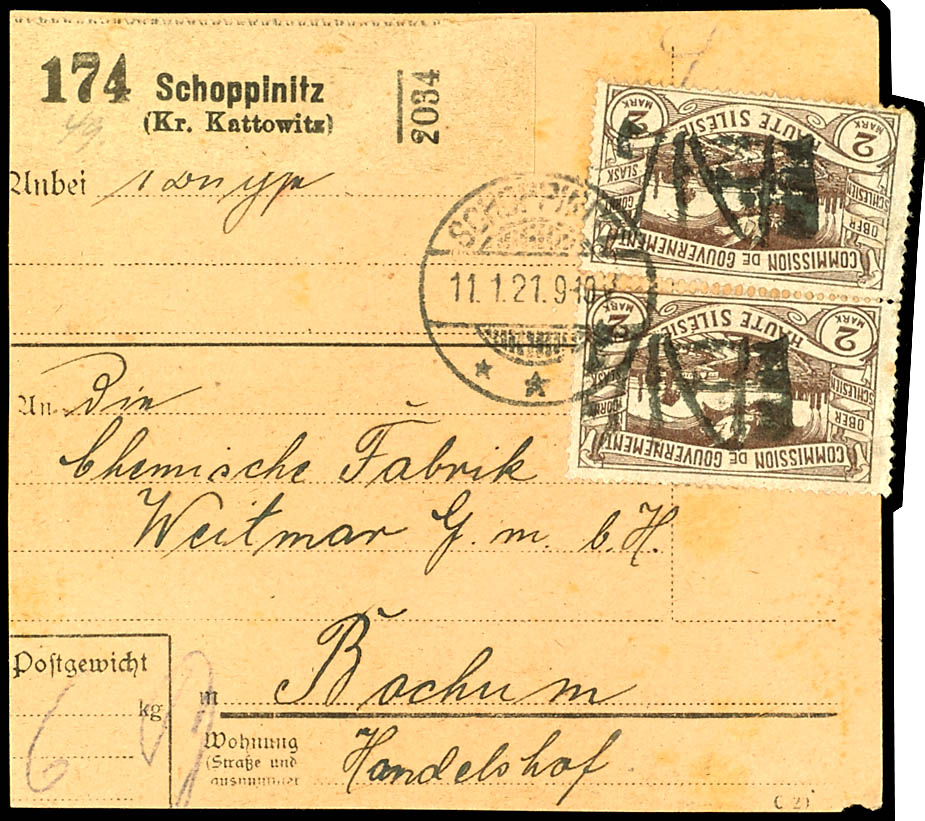 174 Schoppinitz
(Kr. Kattowitz)
2034
Anbei
SCHOPPINITZ
11.1.21.9-10V
2 MARK HAUTE SILESIE 2 MARK
GÓRNY ŚLĄSK
OBER SCHLESIEN
COMMISSION DE GOUVERNEMENT
2 MARK HAUTE SILESIE 2 MARK
GÓRNY ŚLĄSK
OBER SCHLESIEN
COMMISSION DE GOUVERNEMENT
An Die
Chemische Fabrik
Weitmar G. m. b. H.
Postgewicht
kg
in Bochum
Wohnung
(Straße und
Handelshof